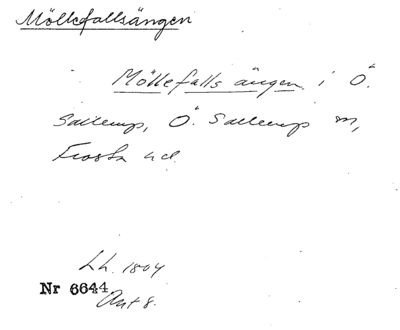 Möllefallsängen
Möllefalls ängen i Ö.
Sallerup, Ö. Sallerup sn,
Frosta hd.
Lh. 1804
Nr 6644
Akt 8.